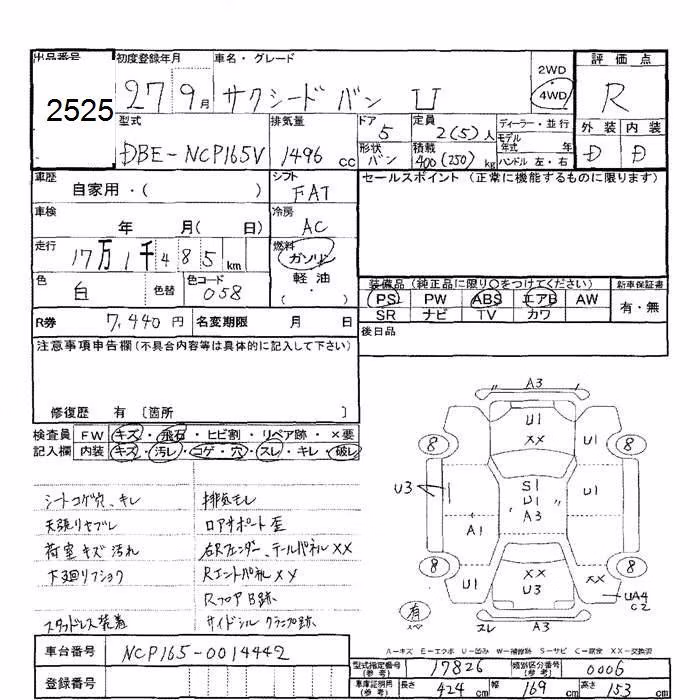 出品番号 初度登録年月 車名・グレード 評価点
2525 27 9月 サクシードバン U 2WD 4WD R
型式 排気量 ドア 定員 ディーラー・並行 外装 内装
DBE-NCP165V 1496 cc 5 2(5)人 モデル年式 年 D D
形状 バン 積載 400(250)kg ハンドル 左・右
車歴 シフト セールスポイント (正常に機能するものに限ります)
自家用・( ) FAT
車検 冷房
年 月(日) AC
走行 燃料
17万1千485km ガソリン
色 色替 色コード 軽油・
白 058 ( )
装備品 (純正品に限り○をつけてください) 新車保証書
PS PW ABS エアB AW 有・無
SR ナビ TV カワ
R券 7,440円 名変期限 月 日 後日品
注意事項申告欄(不具合内容等は具体的に記入して下さい)
修復歴 有〔箇所 〕
検査員 FW キズ・飛石・ヒビ割・リペア跡・×要
記入欄 内装 キズ・汚レ・コゲ・穴・スレ・キレ・破レ
シートコゲ穴、キレ 排気モレ
天張リヤブレ コアサポート歪
荷室キズ汚れ 右Rフェンダー、テールパネルXX
下廻リフショク RエントパネルXY
RフロアB跡
スタッドレス装着 サイドシルクランプ跡
A3
U1
XX
8 U1 8
U3 S1 U1
U1
A1 A3
8 8
U1 XX XX
U3 UA4
C2
有 スペ スレ A3
A-キズ E-エクボ U-凹み W-補修跡 S-サビ C-腐食 XX-交換済
車台番号 NCP165-0014442
型式指定番号(参考) 17826 類別区分番号(参考) 0006
登録番号
車庫証明用(参考) 長さ 424cm 幅 169cm 高さ 153cm